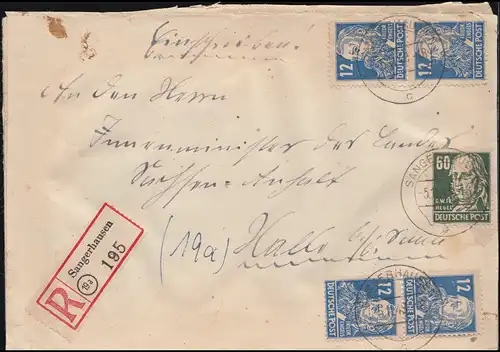 Einschreiben!
An den Herrn
Innenminister des Landes
Sachsen-Anhalt
(19a) Halle
R
Sangerhausen
19a
195
12
DEUTSCHE POST
12
DEUTSCHE POST
60
G.W.FR.
HEGEL
DEUTSCHE POST
12
DEUTSCHE POST
12
DEUTSCHE POST